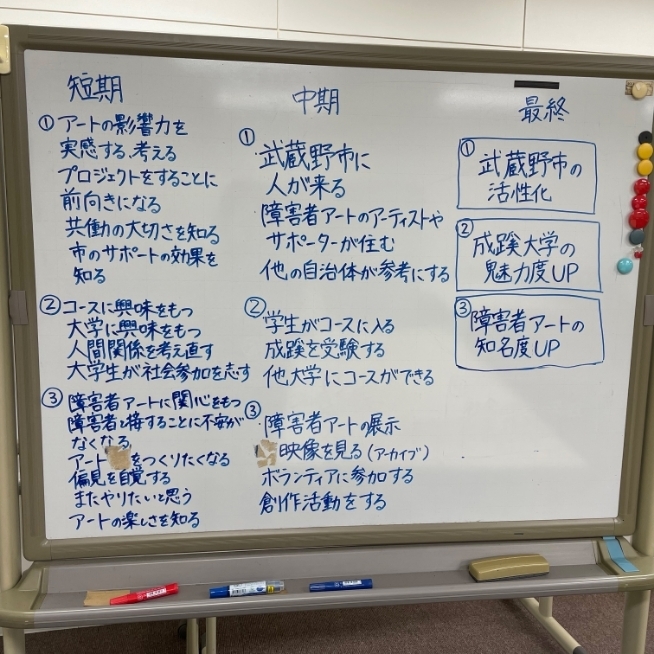 短期
①アートの影響力を
実感する、考える
プロジェクトをすることに
前向きになる
共働の大切さを知る
市のサポートの効果を
知る
②コースに興味をもつ
大学に興味をもつ
人間関係を考え直す
大学生が社会参加を志す
③障害者アートに関心をもつ
障害者と接することに不安が
なくなる
アート をつくりたくなる
偏見を自覚する
またやりたいと思う
アートの楽しさを知る
中期
①
武蔵野市に
人が来る
障害者アートのアーティストや
サポーターが住む
他の自治体が参考にする
②学生がコースに入る
成蹊を受験する
他大学にコースができる
③
障害者アートの展示
映像を見る(アーカイブ)
ボランティアに参加する
創作活動をする
最終
①
武蔵野市の
活性化
②
成蹊大学の
魅力度UP
③
障害者アートの
知名度UP